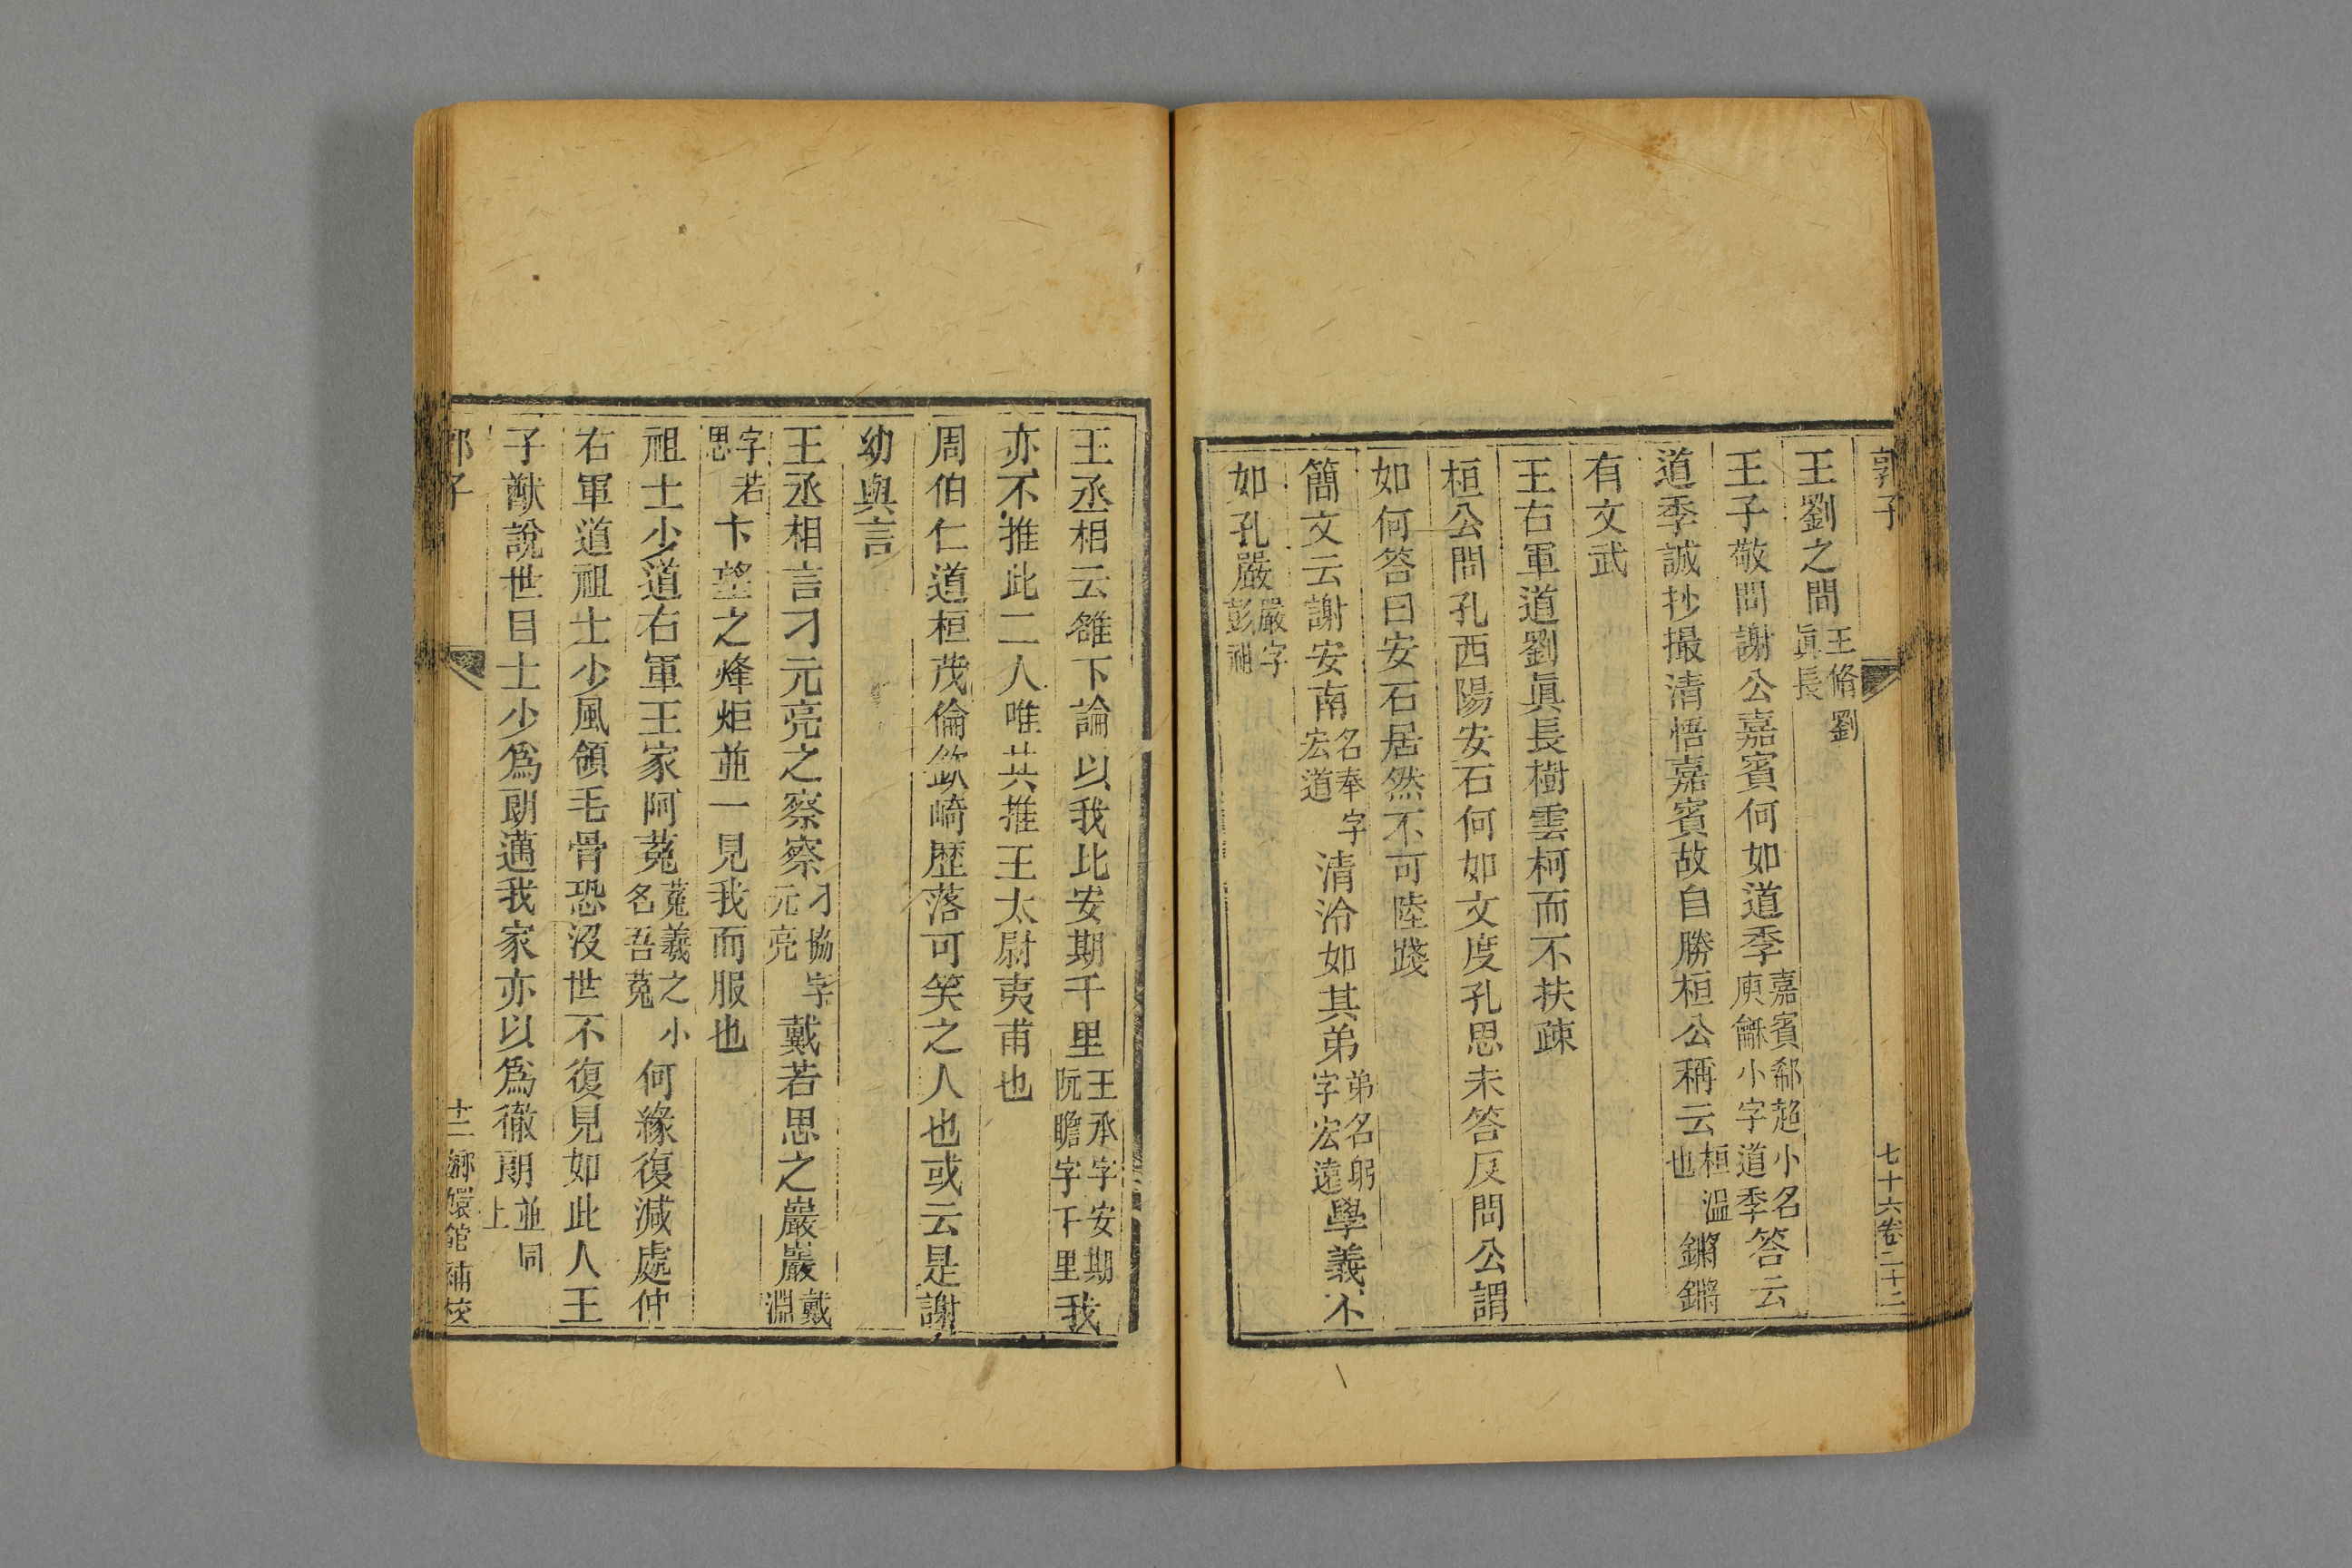 郭子
七十六卷二十二
王劉之間王脩劉眞長
王子敬問謝公嘉賓何如道季嘉賓郗超小名庾龢小字道季答云
道季誠抄撮清悟嘉賓故自勝桓公稱云桓溫也鏘鏘
有文武
王右軍道劉眞長樹雲柯而不扶疎
桓公問孔西陽安石何如文度孔思未答反問公謂
如何答曰安石居然不可陸踐
簡文云謝安南名奉字宏道清泠如其弟弟名躬字宏遠學義不
如孔嚴嚴字彭祖
王丞相云雒下論以我比安期千里王承字安期阮瞻字千里我
亦不推此二人唯共推王太尉夷甫也
周伯仁道桓茂倫嶔崎歷落可笑之人也或云是謝
幼輿言
王丞相言刁元亮之察察刁協字元亮戴若思之巖巖戴淵
字若思卞望之烽炬並一見我而服也
祖士少道右軍王家阿菟菟羲之小名吾菟何緣復減處仲
右軍道祖士少風領毛骨恐沒世不復見如此人王
子猷說世目士少爲朗邁我家亦以爲徹朗並同上
郭子
十二 嫏嬛館補校